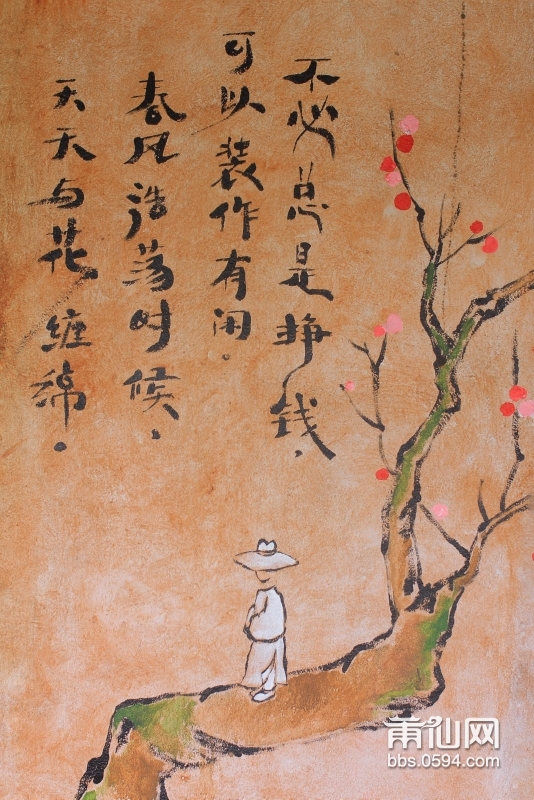 不必总是挣钱，
可以装作有闲。
春风浩荡时候，
天天与花缠绵。
莆仙网
bbs.0594.com